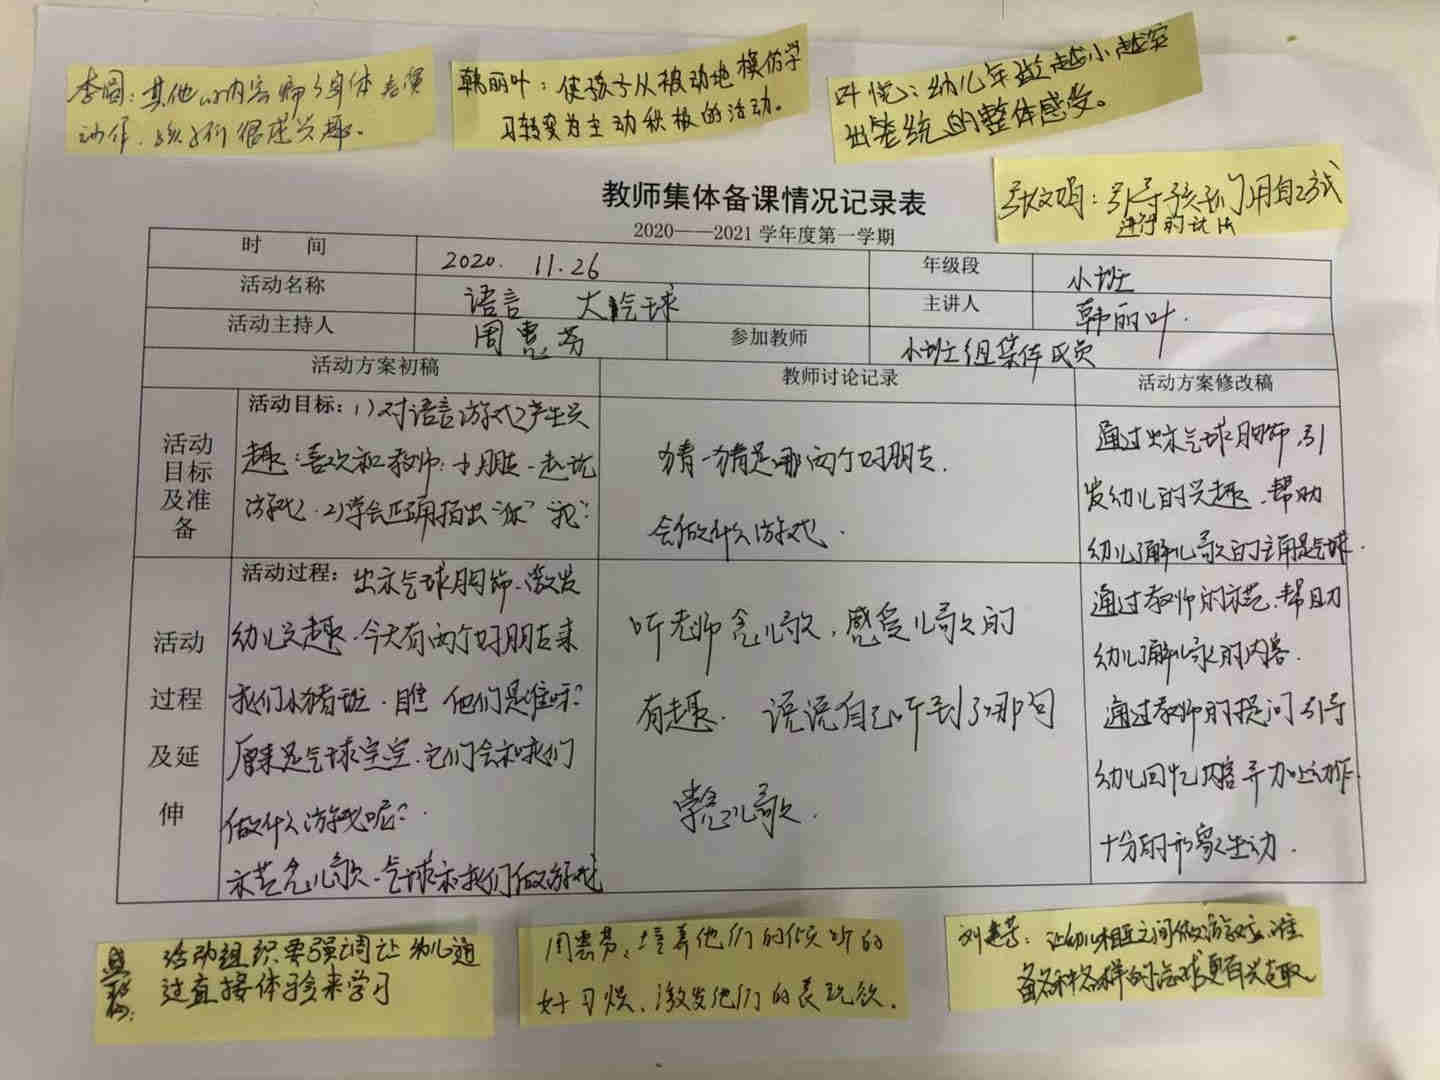 韩丽叶：使孩子从被动地模仿学
习转变为主动积极的活动。
叶悦：幼儿年龄越小越突
出笼统的整体感受。
引导孩子们用自己方式
进行的
教师集体备课情况记录表
2020——2021 学年度第一学期
时 间 2020. 11.26 年级段 小班
活动名称 语言 大气球 主讲人 韩丽叶.
活动主持人 周惠芬 参加教师 小班组集体成员
活动方案初稿 教师讨论记录 活动方案修改稿
活动目标及准备
活动目标：1)对语言游戏产生兴
趣：喜欢和教师：小朋友一起玩
游戏. 2)学会正确指出“你”“我”：
猜一猜是哪两个好朋友.
会做什么游戏.
通过出示气球胸饰.引
发幼儿的兴趣.帮助
幼儿了解儿歌的主角是气球.
活动过程及延伸
活动过程：出示气球胸饰.激发
幼儿兴趣.今天有两个好朋友来
我们小猪班. 他们是谁呀？
原来是气球宝宝.它们会和我们
做什么游戏呢？
示范念儿歌.气球和我们做游戏
听老师念儿歌，感受儿歌的
有趣. 说说自己听到了哪句
学念儿歌.
通过教师的示范.帮助
幼儿了解儿歌的内容.
通过教师的提问引导
幼儿回忆内容并加上动作
十分的形象生动.
活动组织要强调让幼儿通
过直接体验来学习
周惠芬：培养他们的倾听的
好习惯、激发他们的表现欲.
让幼儿相互之间做游戏,准
备各种各样的气球更有兴趣